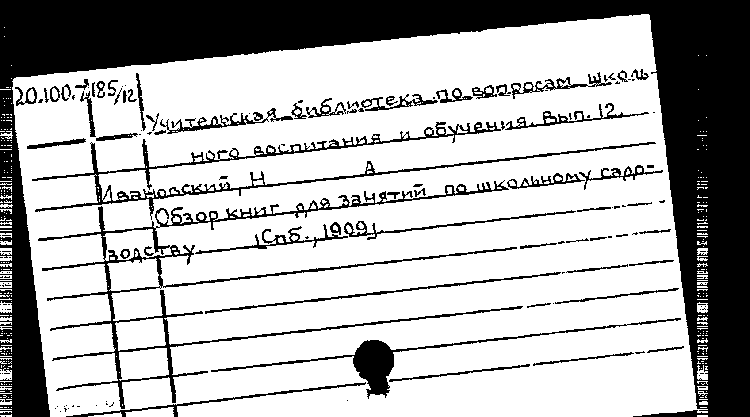 20.100.7.185/12
Учительская библиотека по вопросам школь-
ного воспитания и обучения. Вып. 12.
Ивановский, Н А
Обзор книг для занятий по школьному садо-
водству. [Спб., 1909].